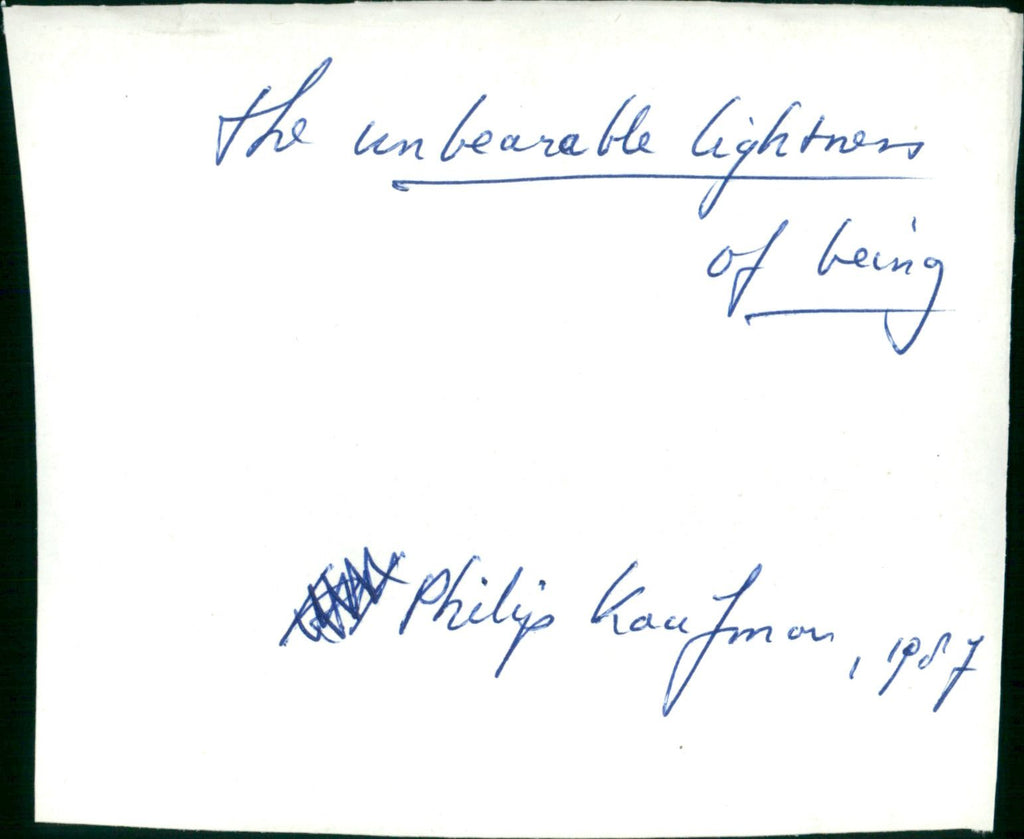 the unbearable lightness
of being
Philip Kaufman, 1987